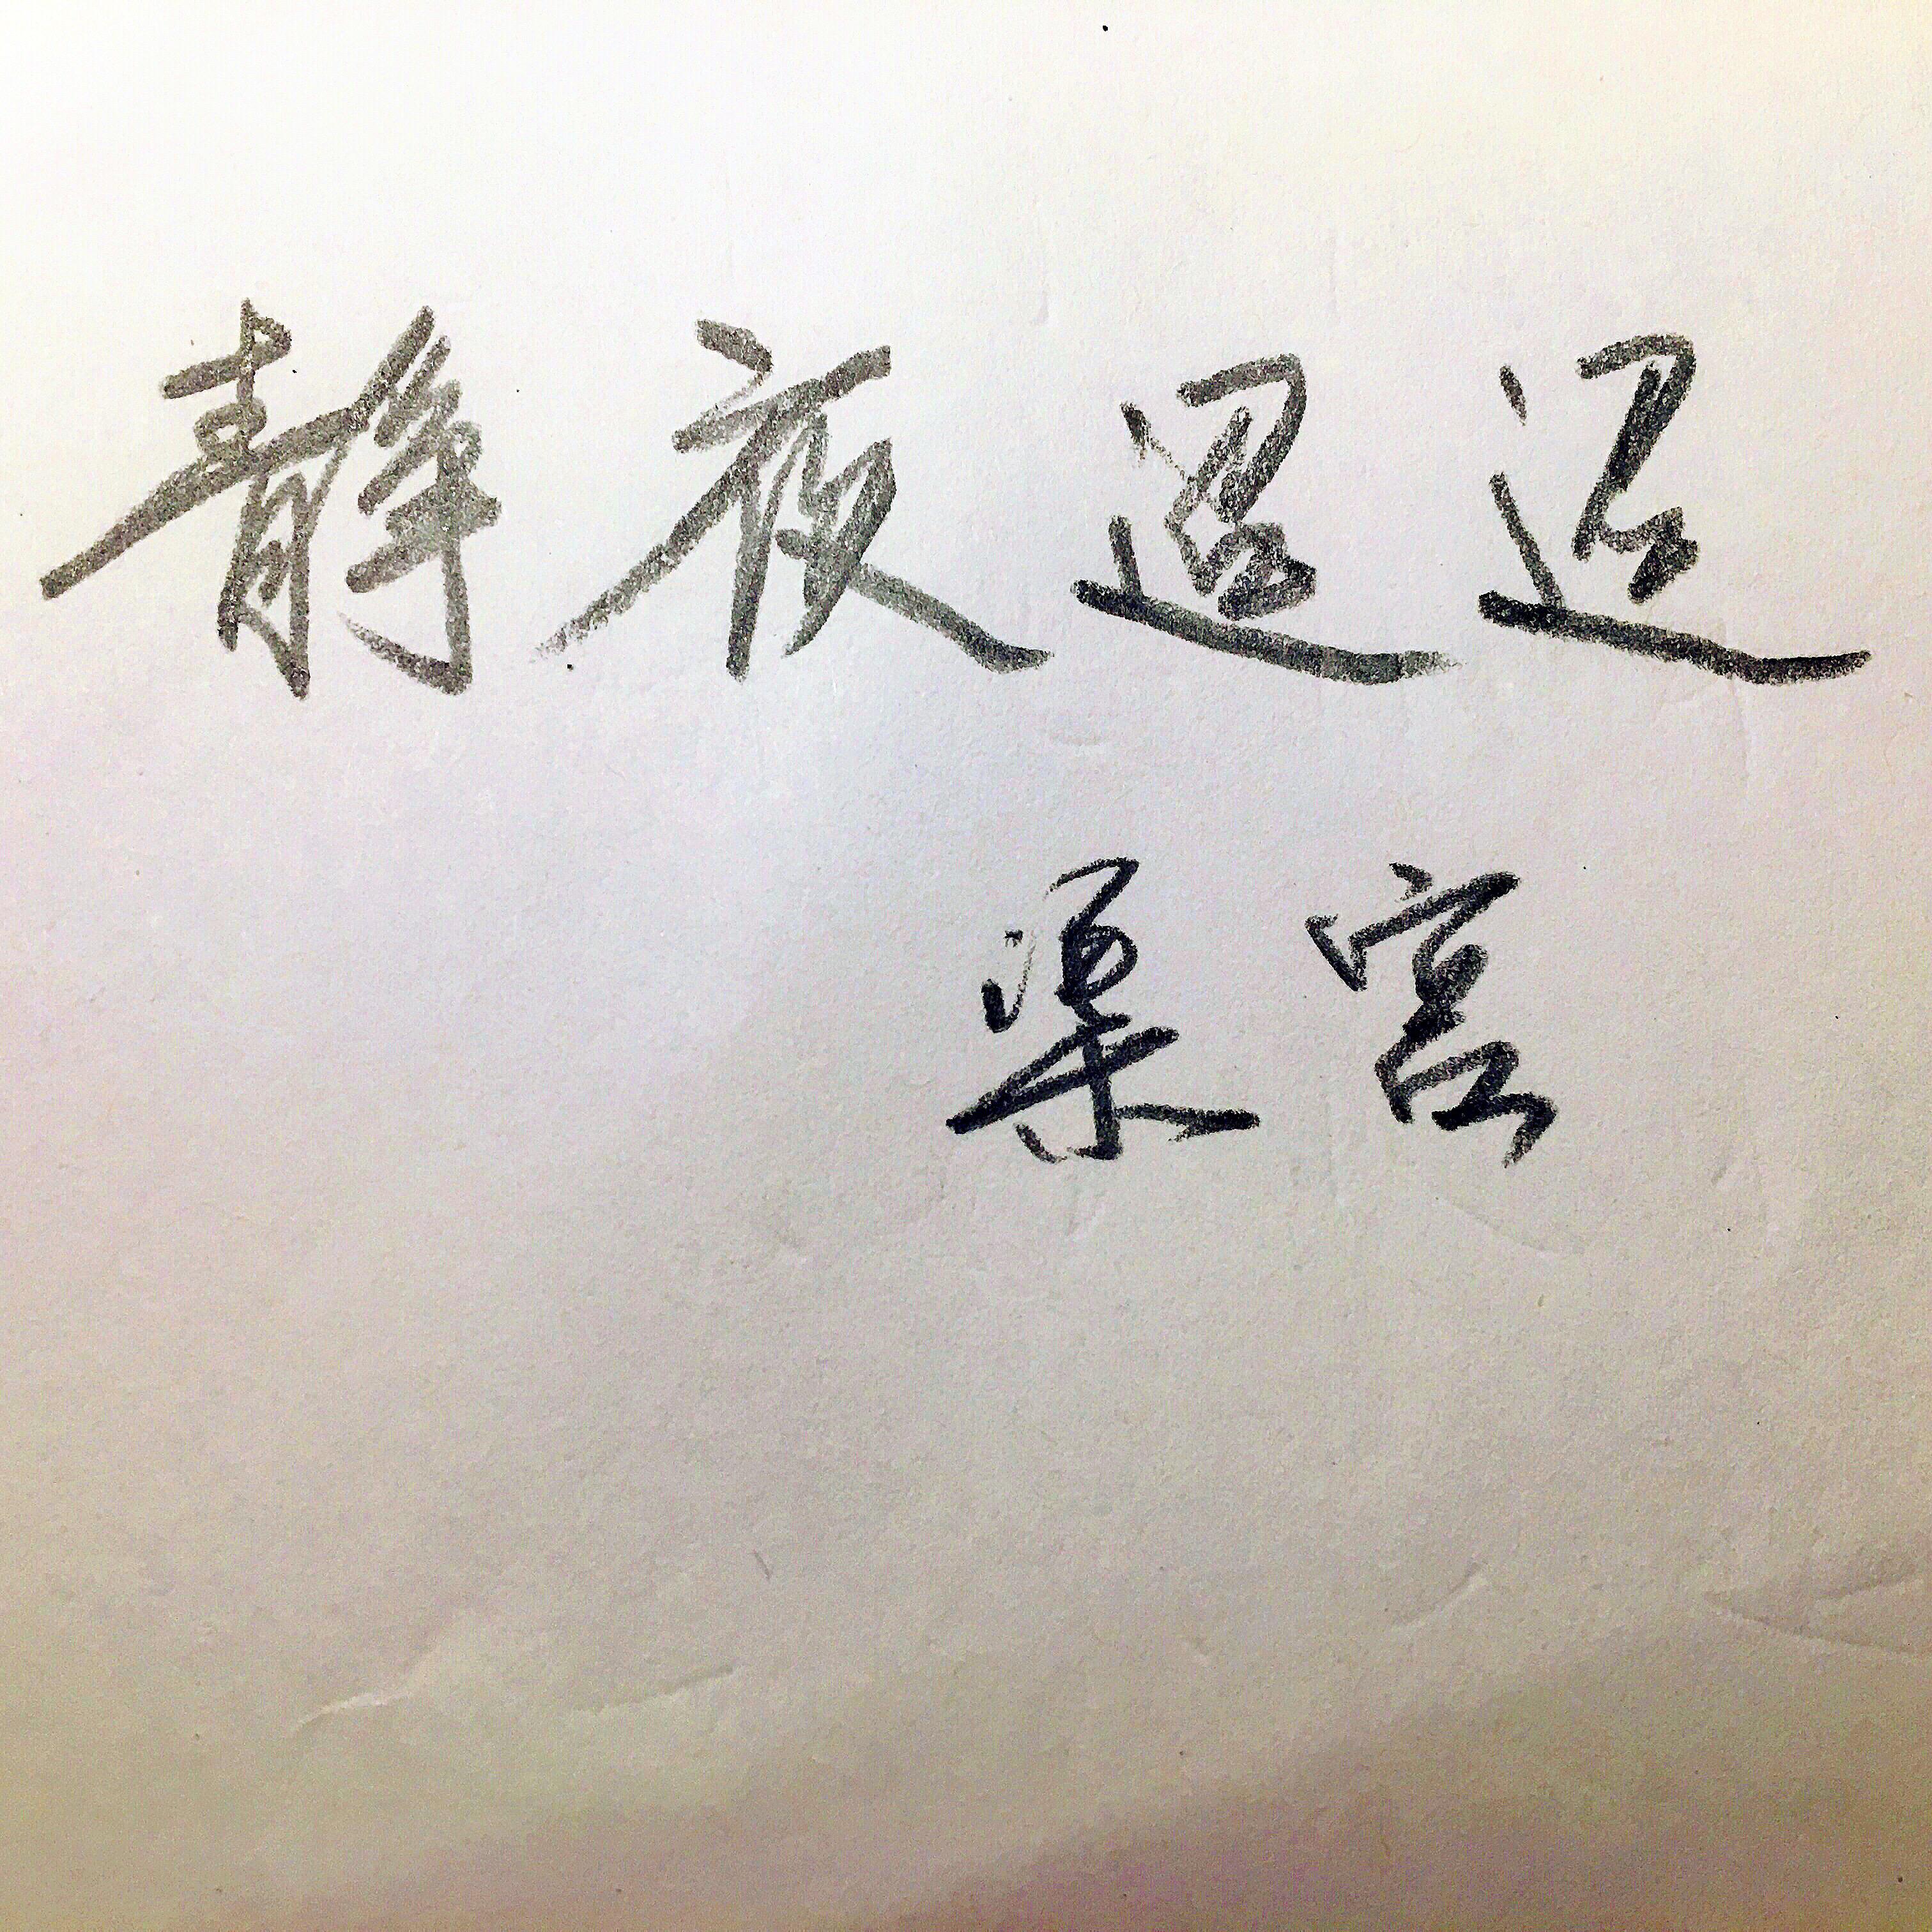 静夜迢迢
渠宫